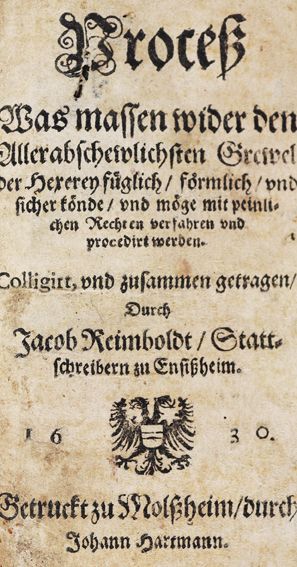 Proceß
Was massen wider den
Allerabschewlichsten Grewel
der Hexerey füglich / förmlich / vnd
sicher könde / vnd möge mit peinli-
chen Rechten verfahren vnd
procedirt werden.
Colligirt, vnd zusammen getragen /
Durch
Jacob Reimboldt / Statt-
schreibern zu Ensißheim.
1 6 3 0.
Getruckt zu Molßheim / durch
Johann Hartmann.